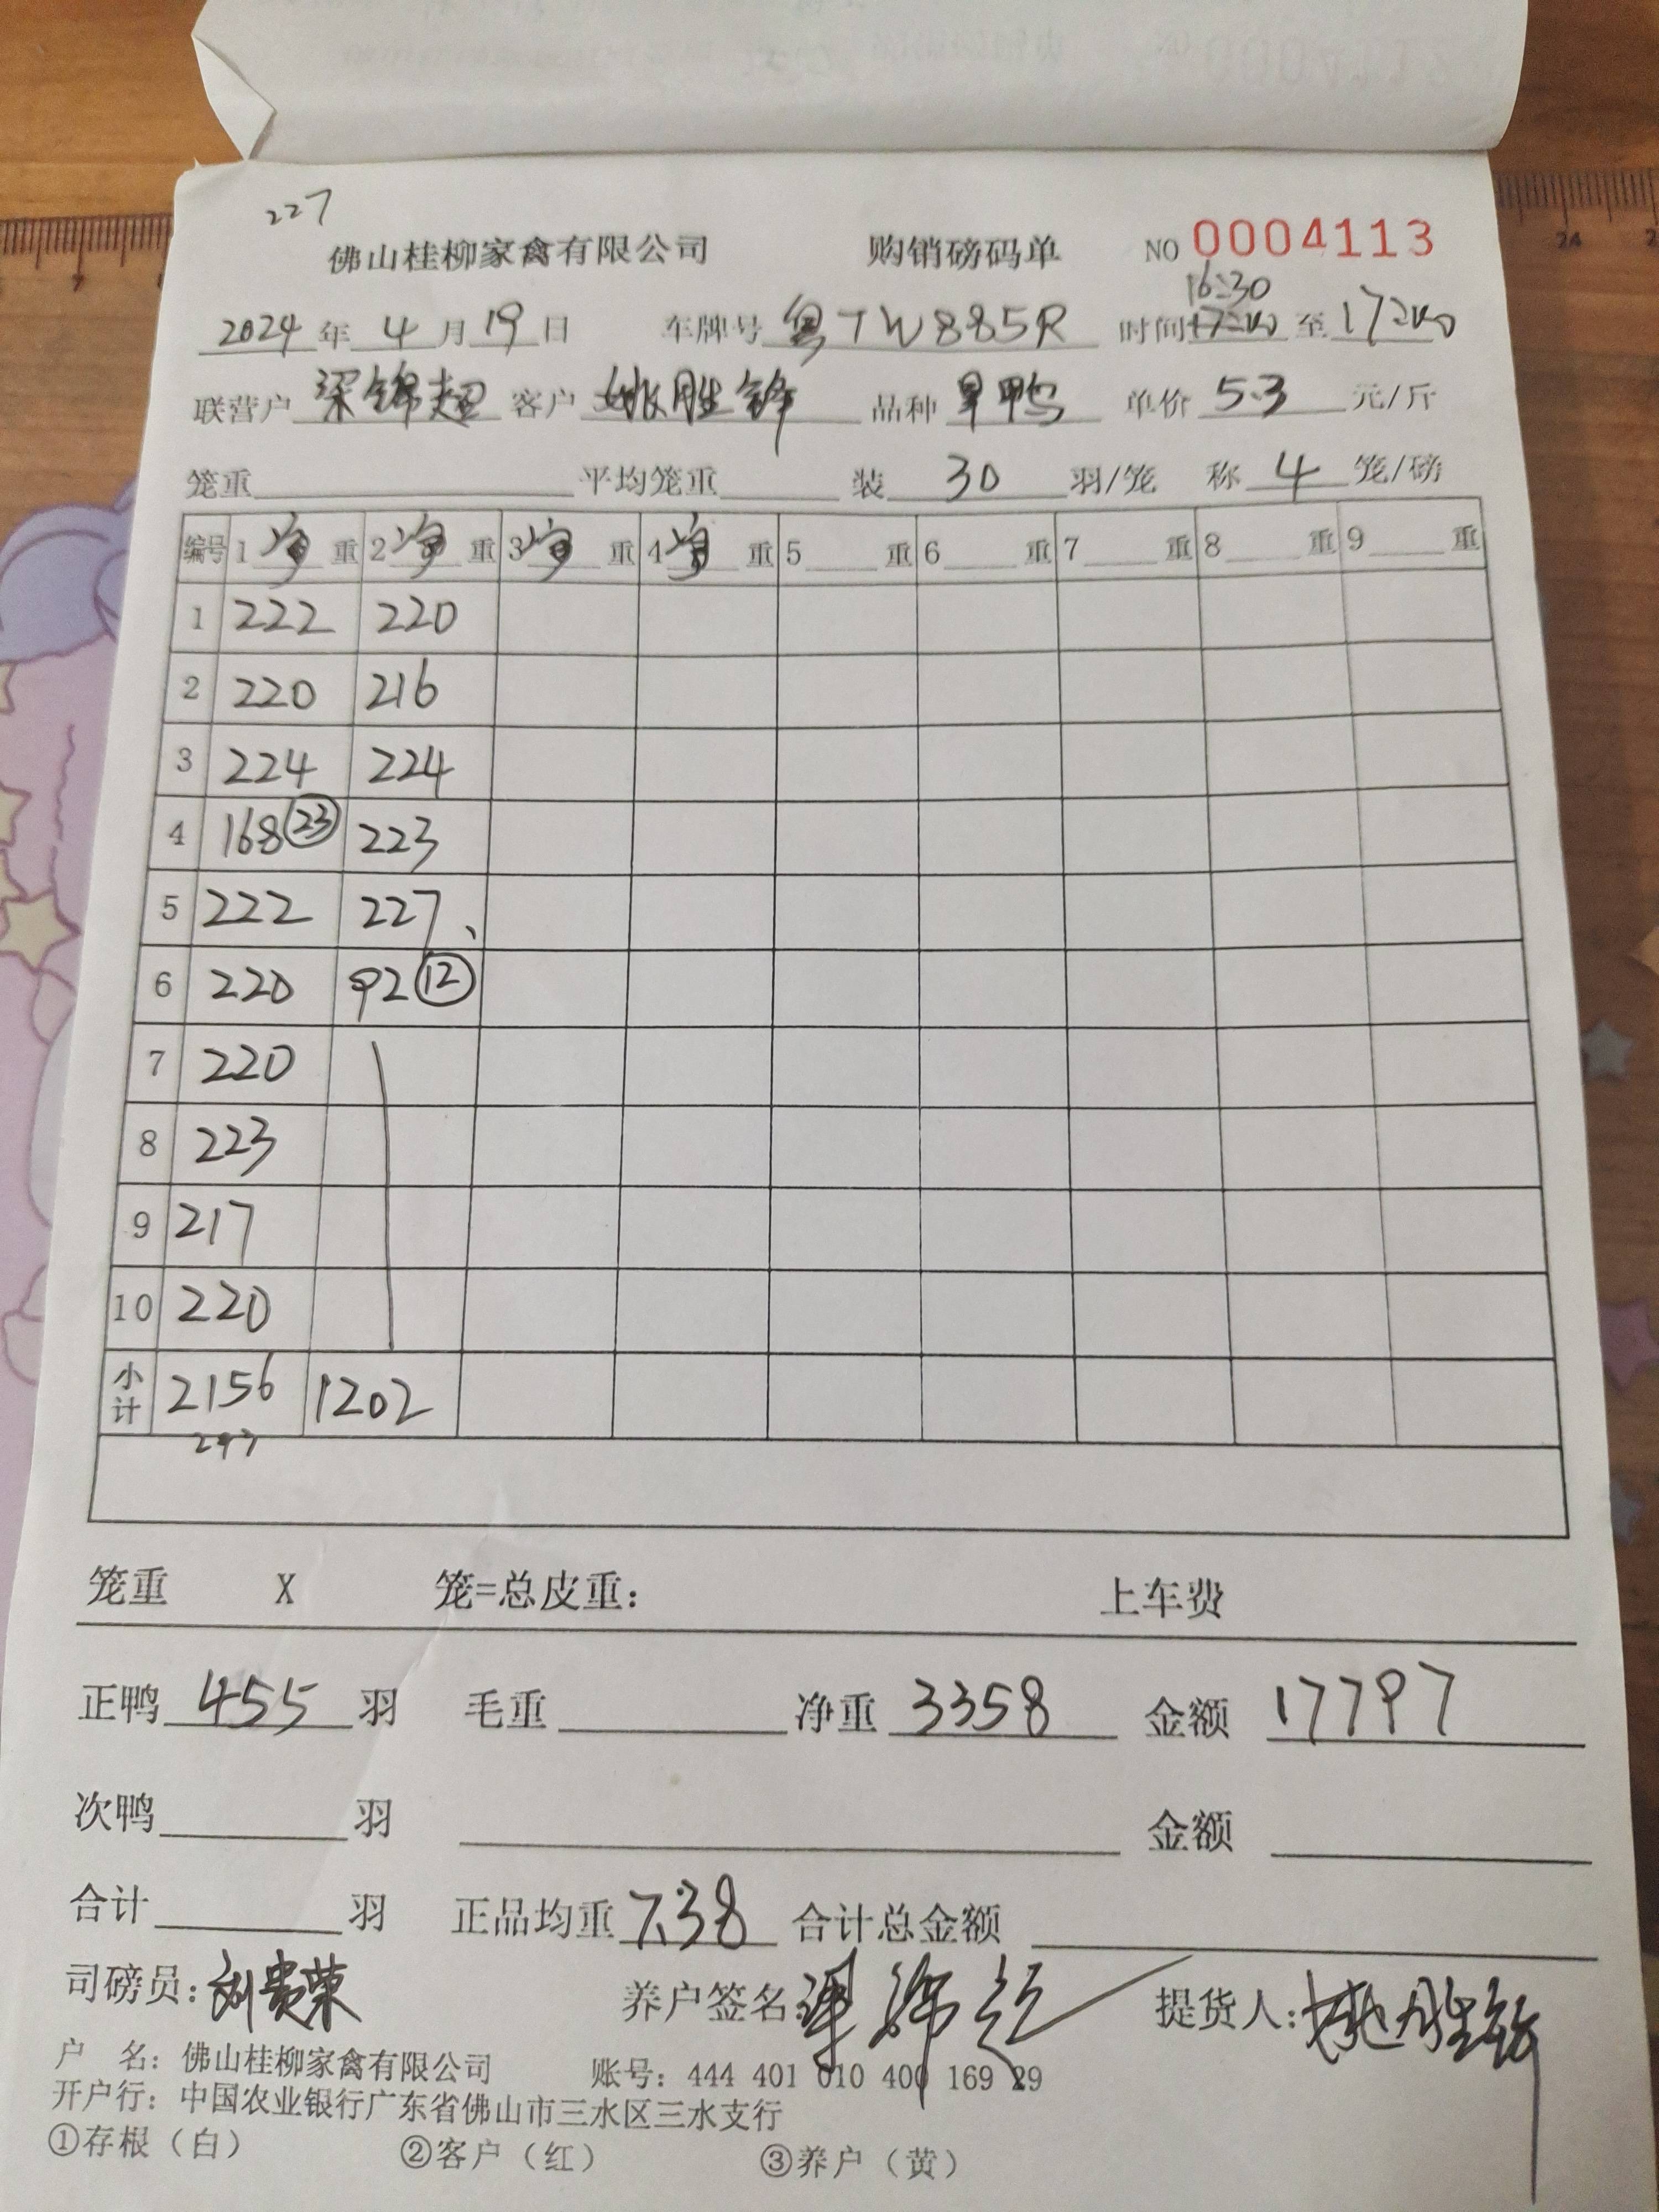 227
佛山桂柳家禽有限公司 购销磅码单 NO 0004113
16:30
2024 年 4 月 19 日 车牌号 粤TW885R 时间 17:00 至 17:00
联营户 梁锦超 客户 姚胜锋 品种 旱鸭 单价 5.3 元/斤
笼重 平均笼重 装 30 羽/笼 称 4 笼/磅
编号 1 净 重 2 净 重 3 净 重 4 净 重 5 重 6 重 7 重 8 重 9 重
1 222 220
2 220 216
3 224 224
4 168 23 223
5 222 227、
6 220 92 12
7 220
8 223
9 217
10 220
小计 2156 1202
笼重 X 笼=总皮重： 上车费
正鸭 455 羽 毛重 净重 3358 金额 17797
次鸭 羽 金额
合计 羽 正品均重 7.38 合计总金额
司磅员：刘贵荣 养户签名：梁锦超 提货人：姚胜锋
户 名：佛山桂柳家禽有限公司 账号：444 401 010 400 169 29
开户行：中国农业银行广东省佛山市三水区三水支行
①存根（白） ②客户（红） ③养户（黄）